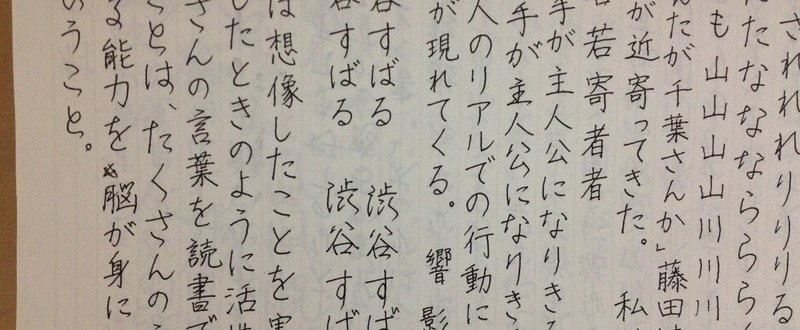 されれれりりりる
たなななららら
も山山山山川川川
んたが千葉さんか」藤田
が近寄ってきた。 私
若若寄者者
手が主人公になりきる
手が主人公になりき
人のリアルでの行動に
が現れてくる。 響 影
谷すばる 渋谷すば
谷すばる 渋谷すば
は想像したことを実
したときのように活性
さんの言葉を読書で
ことは、たくさんの
る能力を脳が身に
いうこと。